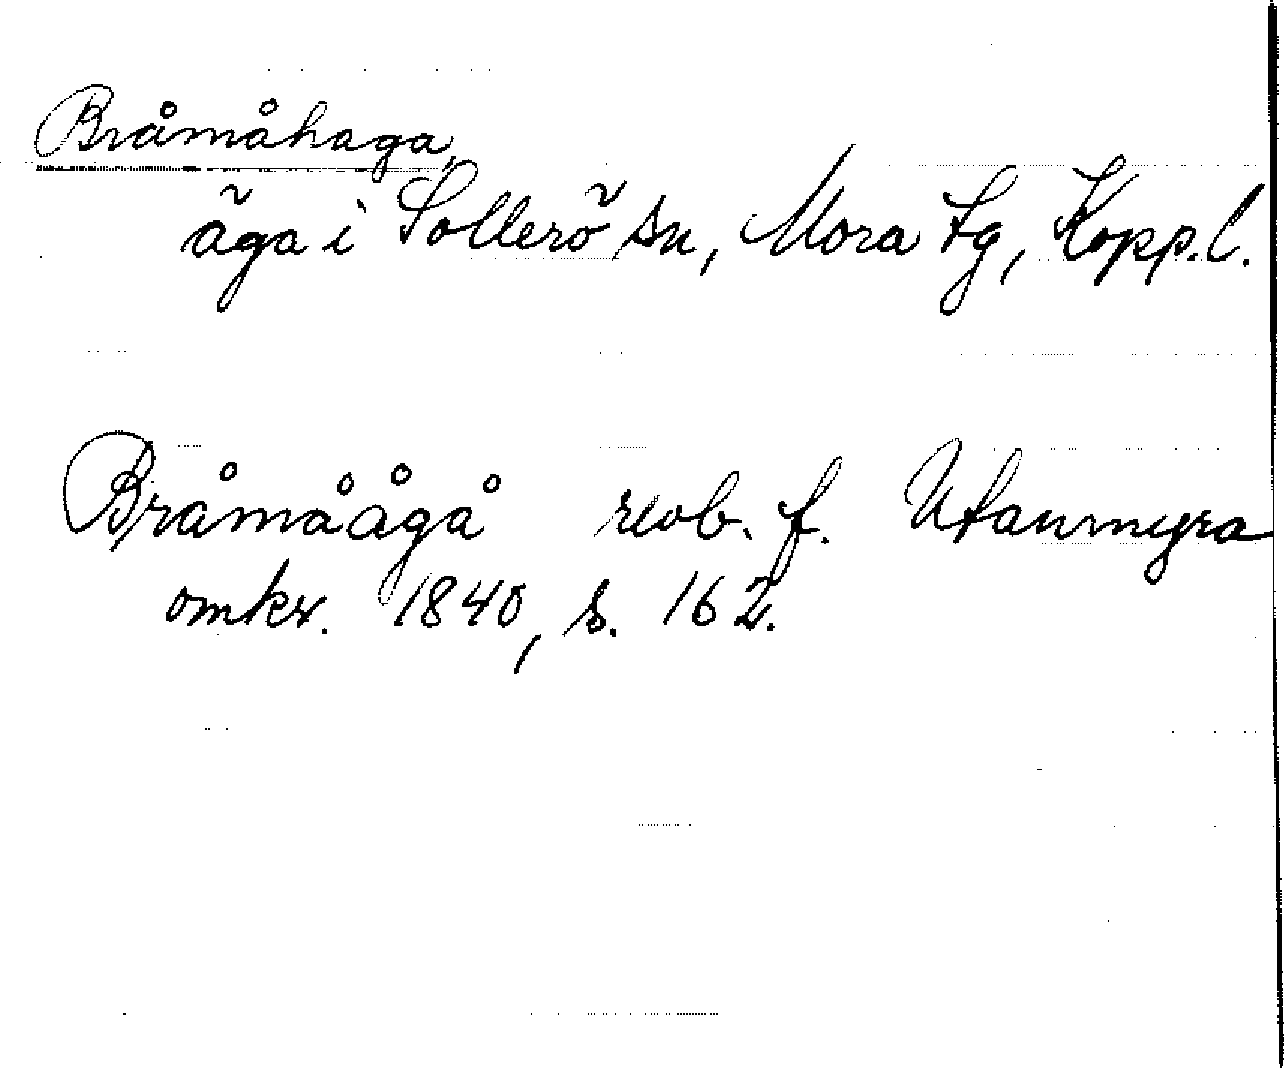 Bråmåhaga,
äga i Sollerö sn, Mora tg, Kopp.l.
Bråmåågå revb. f. Utanmyra
omkr. 1840, s. 162.